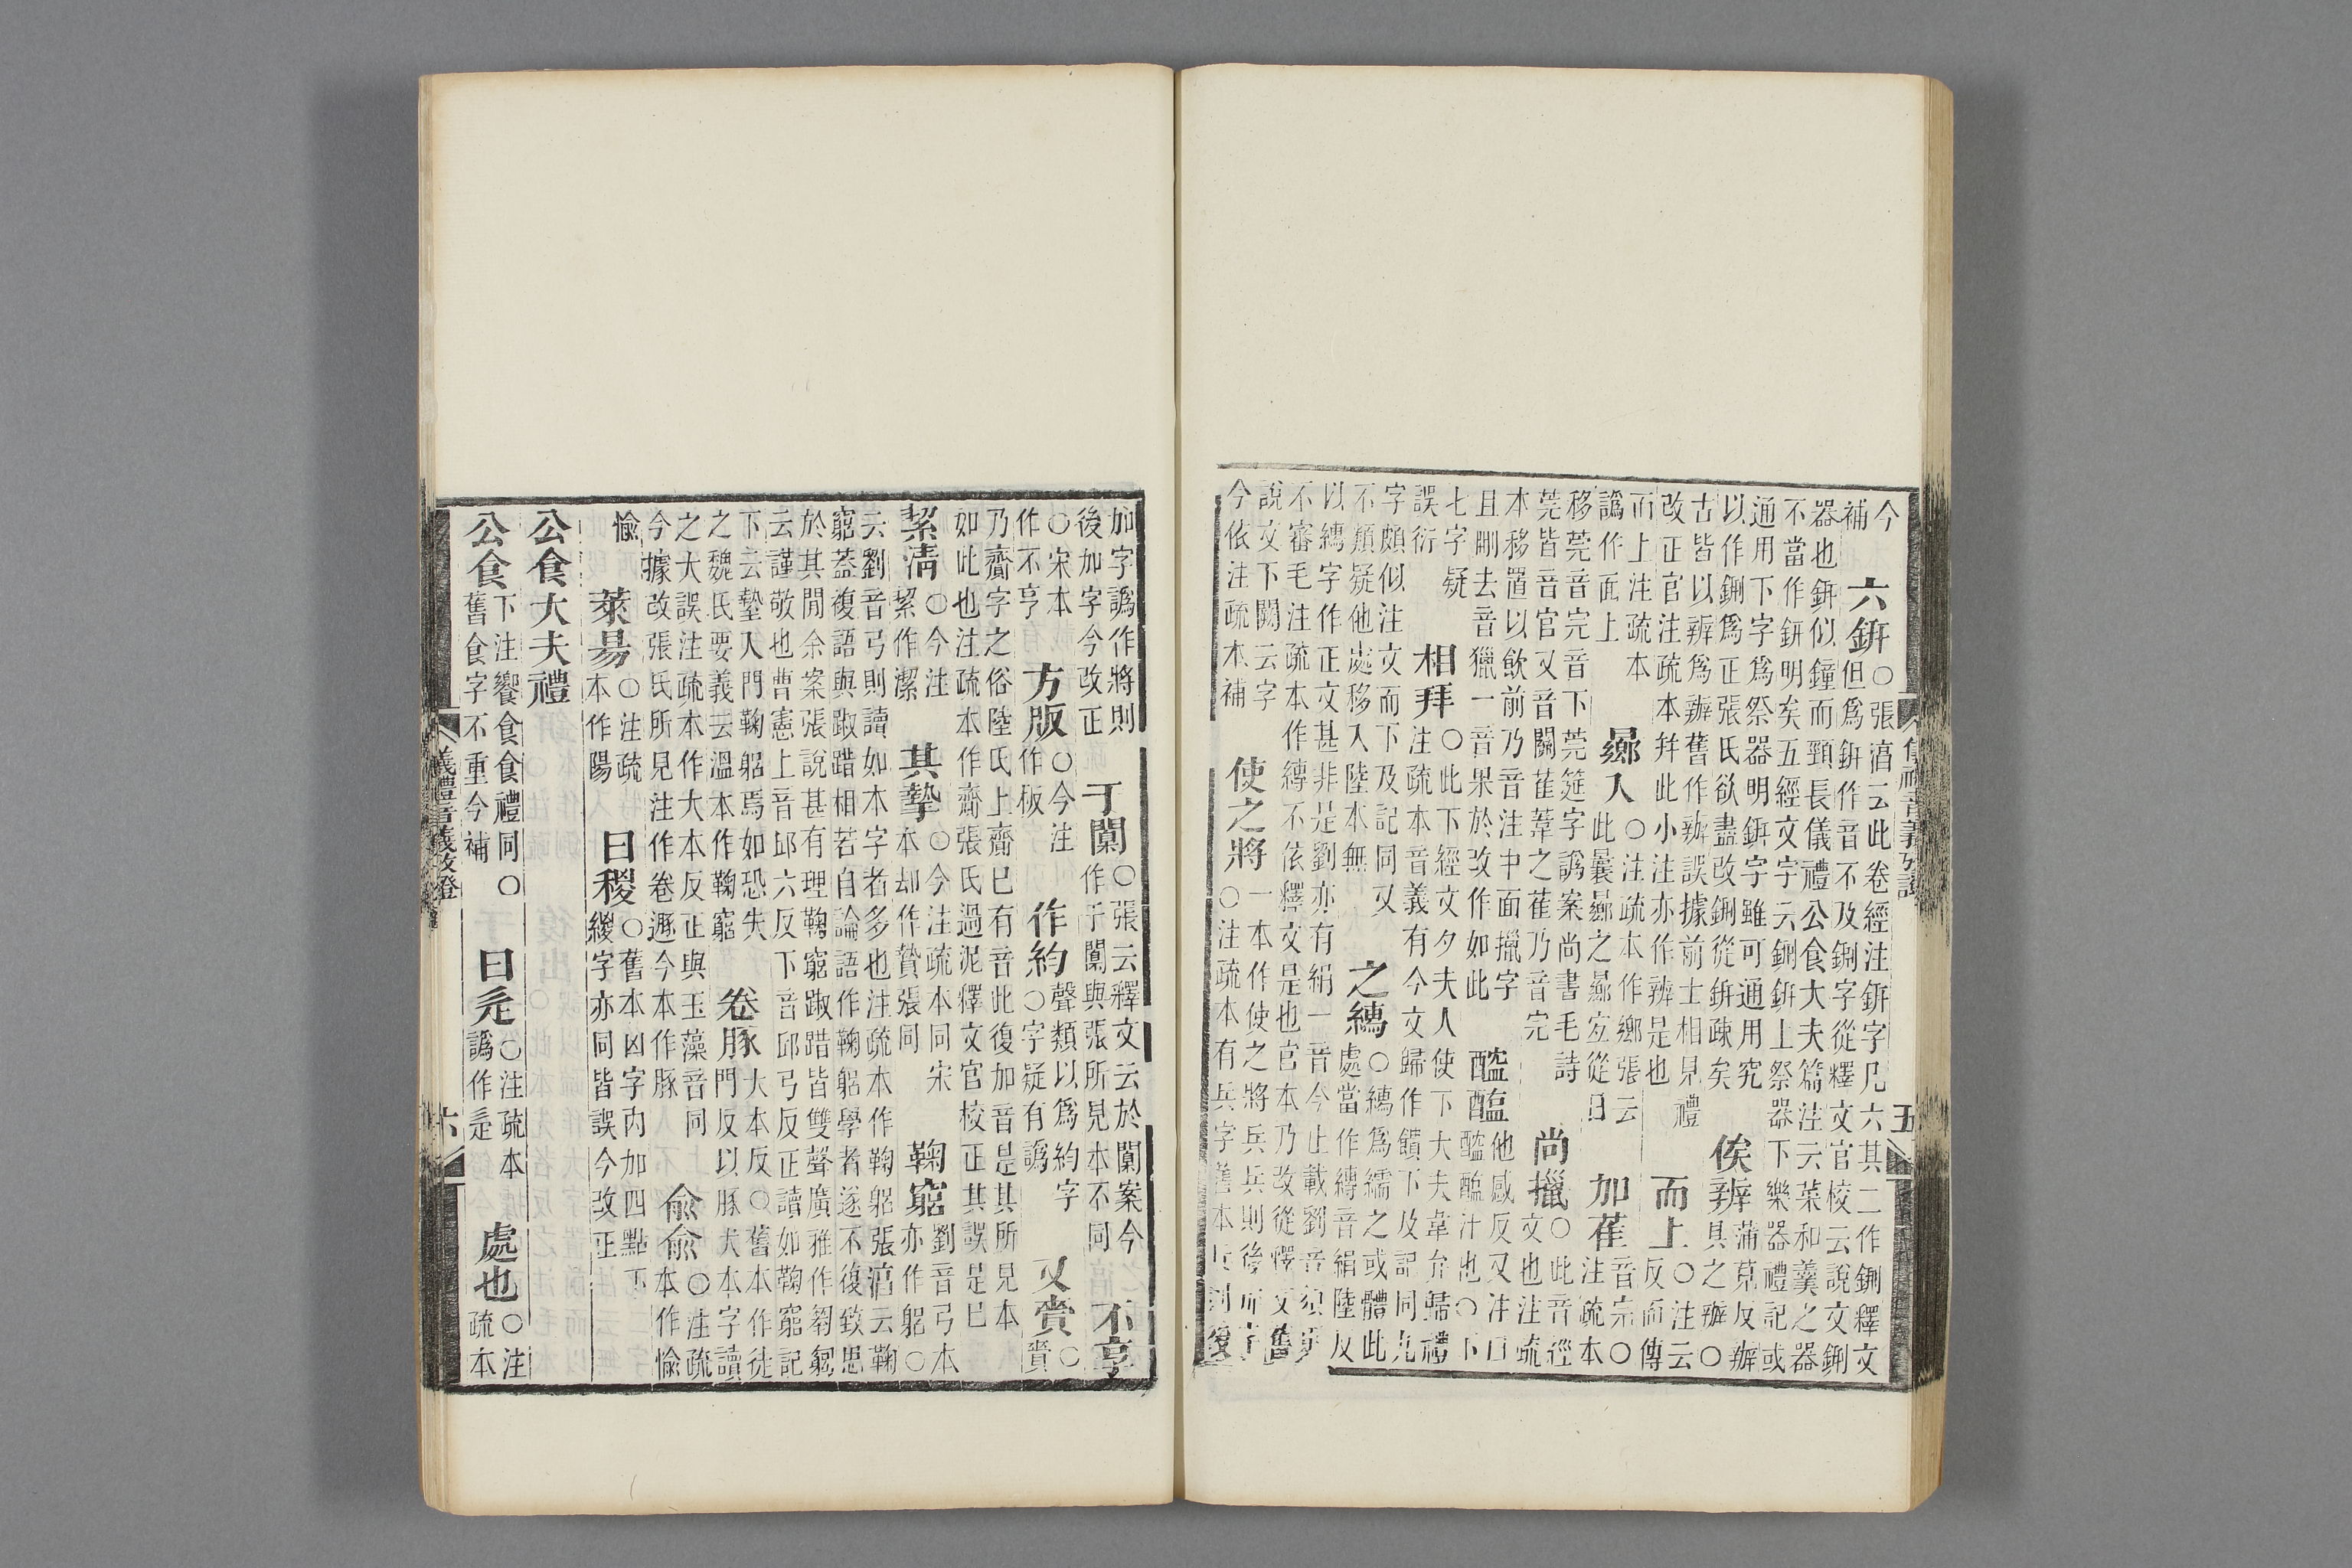 今補六鈃○張淳云此卷經注鈃字凡六其二作鉶釋文
但爲鈃作音不及鉶字從釋文官校云說文鉶
器也鈃似鐘而頸長儀禮公食大夫篇注云菜和羹之器
不當作鈃明矣五經文字云鉶鈃上祭器下樂器禮記或
通用下字爲祭器明鈃字雖可通用究
以作鉶爲正張氏欲盡改鉶從鈃疎矣
俟辨蒲莧反辦具之辦○
古皆以辨爲辦舊作辦誤據前士相見禮
改正官注疏本并此小注亦作辨是也
而上○注云反而傳
而上注疏本譌作面上
曏入○注疏本作鄉張云此曩曏之曏宜從日
加萑音宗○注疏本
移莞音完音下莞筵字譌案尚書毛詩
莞皆音官又音關萑葦之萑乃音完
尚擸○此音經文也注疏
本移置以飲前乃音注中面擸字
且刪去音獵一音果於改作如此
醓醢他感反又注曰醓醢汁也○下
七字疑誤衍
相拜○此下經文夕夫人使下大夫韋弁歸禮
注疏本音義有今文歸作饋下及記同九
字頗似注文而下及記同又
不類疑他處移入陸本無
之縳○縳爲繻之或體此處當作縛音絹陸反
以縳字作正文甚非是劉亦有絹一音今止載劉音須與
不審毛注疏本作縛不依釋文是也官本乃改從釋文舊
說文下闕云字今依注疏本補
使之將一本作使之將兵兵則後所字
○注疏本有兵字舊本兵則復
儀禮音義攷證
五
加字譌作將則後加字今改正
于闑○張云釋文云於闑案今作于闑與張所見本不同
不亨○宋本作不亨
方版○今注作板
作約聲類以爲約字○字疑有譌
又賫○賫
乃齎字之俗陸氏上齎已有音此復加音是其所見本
如此也注疏本作齎張氏過泥釋文官校正其誤是已
絜清○今注絜作潔
其摯○今注疏本同宋本却作贄張同
鞠窮劉音弓本亦作躬○
云劉音弓則讀如本字者多也注疏本作鞠躬張淳云鞠
窮蓋複語與踧踖相若自論語作鞠躬學者遂不復致思
於其閒余案張說甚有理鞠窮踧踖皆雙聲廣雅作匑匔
云謹敬也曹憲上音邱六反下音邱弓反正讀如鞠窮記
下云摯入門鞠躬焉如恐失
之魏氏要義云溫本作鞠窮
卷豚大本反○舊本作徒門反以豚犬本字讀
之大誤注疏本作大本反正與玉藻音同
今據改張氏所見注作卷遯今本作豚
俞俞○注疏本作愉愉
萊昜○注疏本作陽
曰稷○舊本凶字内加四點下
繌字亦同皆誤今改正
公食大夫禮
公食下注饗食食禮同○舊食字不重今補
曰辵○注疏本譌作辵
處也○注疏本
儀禮音義攷證
六